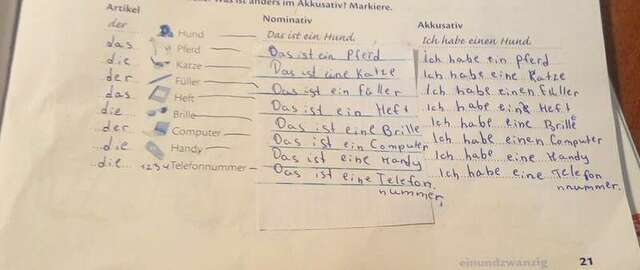 was ist anders im Akkusativ? Markiere.
Artikel Nominativ Akkusativ
der Hund Das ist ein Hund. Ich habe einen Hund.
das Pferd Das ist ein Pferd Ich habe ein Pferd
die Katze Das ist eine Katze Ich habe eine Katze
der Füller Das ist ein Füller Ich habe einen Füller
das Heft Das ist ein Heft Ich habe ein Heft
die Brille Das ist eine Brille Ich habe eine Brille
der Computer Das ist ein Computer Ich habe einen Computer
die Handy Das ist eine Handy Ich habe eine Handy
die 1234 Telefonnummer Das ist eine Telefon Ich habe eine Telefon
nummer. nnummer.
einundzwanzig 21